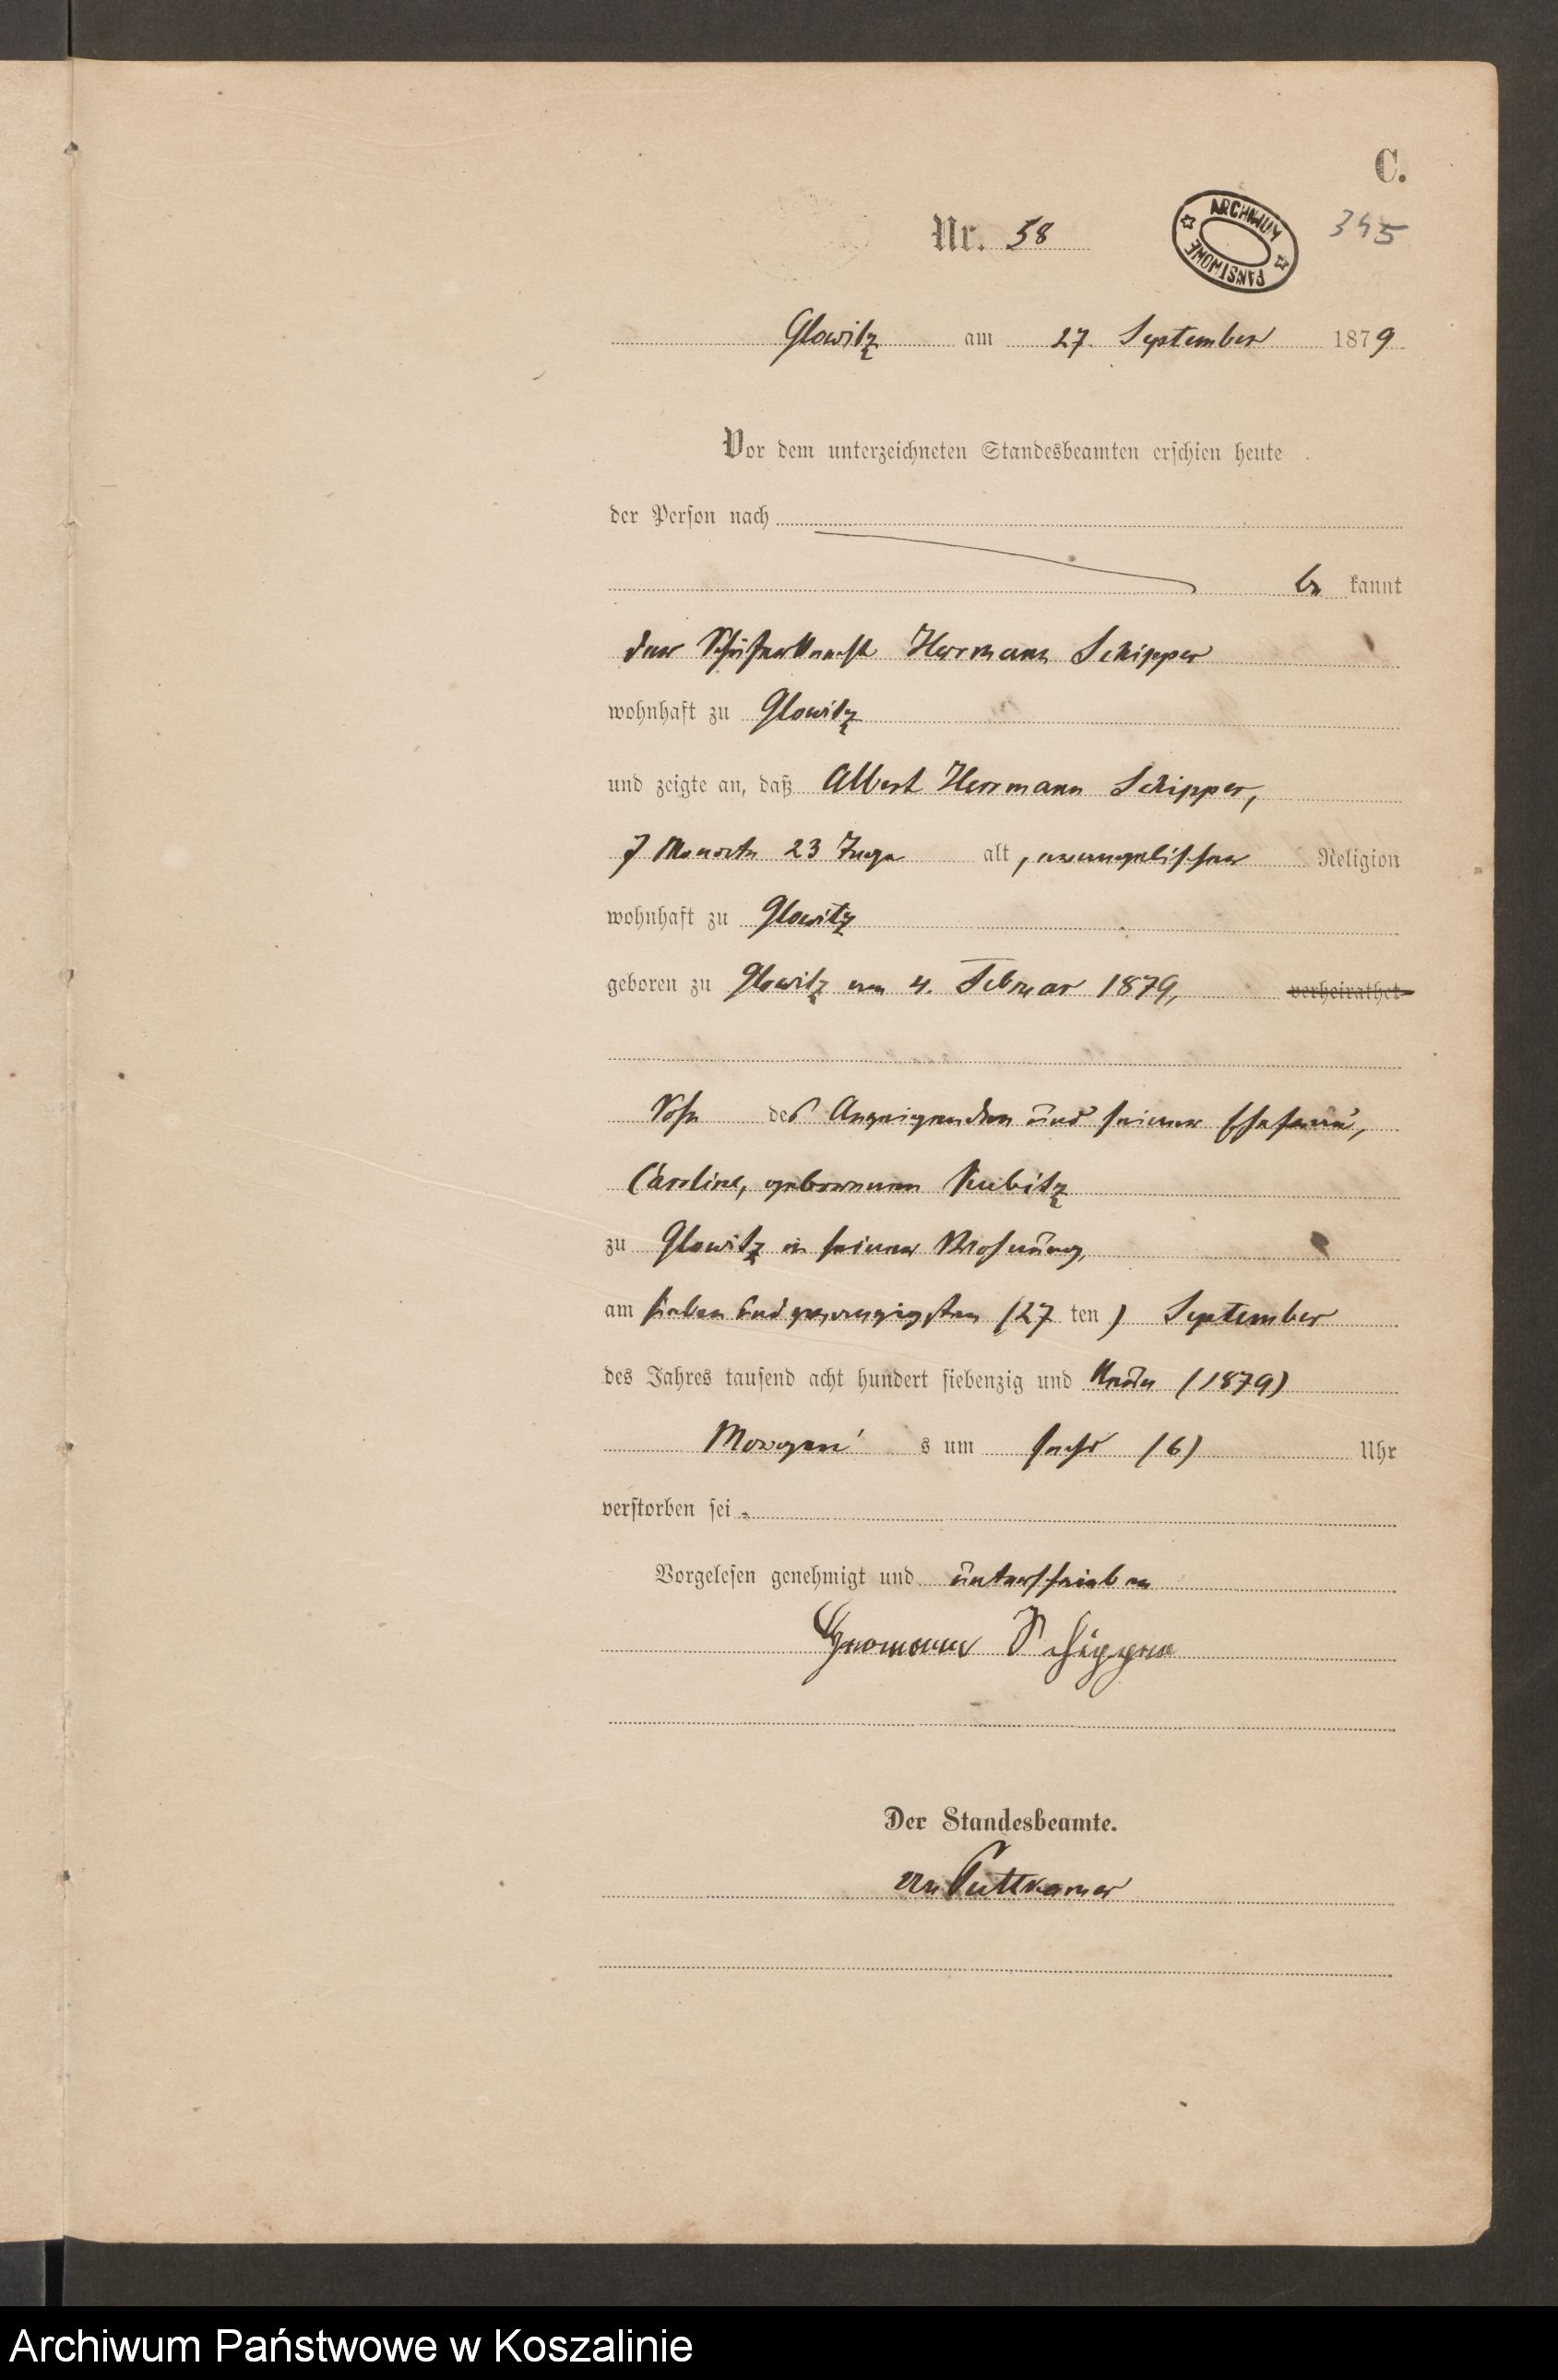 C.
Nr. 58
ARCHIWUM PAŃSTWOWE
345
Glowitz am 27. September 1879
Vor dem unterzeichneten Standesbeamten erschien heute
der Person nach
be kannt
der Schäferknecht Herrmann Schipper
wohnhaft zu Glowitz
und zeigte an, daß Albert Herrmann Schipper,
7 Monate 23 Tage alt, evangelischer Religion
wohnhaft zu Glowitz
geboren zu Glowitz am 4. Februar 1879, verheirathet
Sohn des Anzeigenden und seiner Ehefrau,
Caroline, geborenen Kubitz
zu Glowitz in seiner Wohnung,
am sieben und zwanzigsten (27 ten) September
des Jahres tausend acht hundert siebenzig und neun (1879)
Morgen s um sechs (6) Uhr
verstorben sei.
Vorgelesen genehmigt und unterschrieben
Herrmann Schipper
Der Standesbeamte.
von Puttkamer
Archiwum Państwowe w Koszalinie